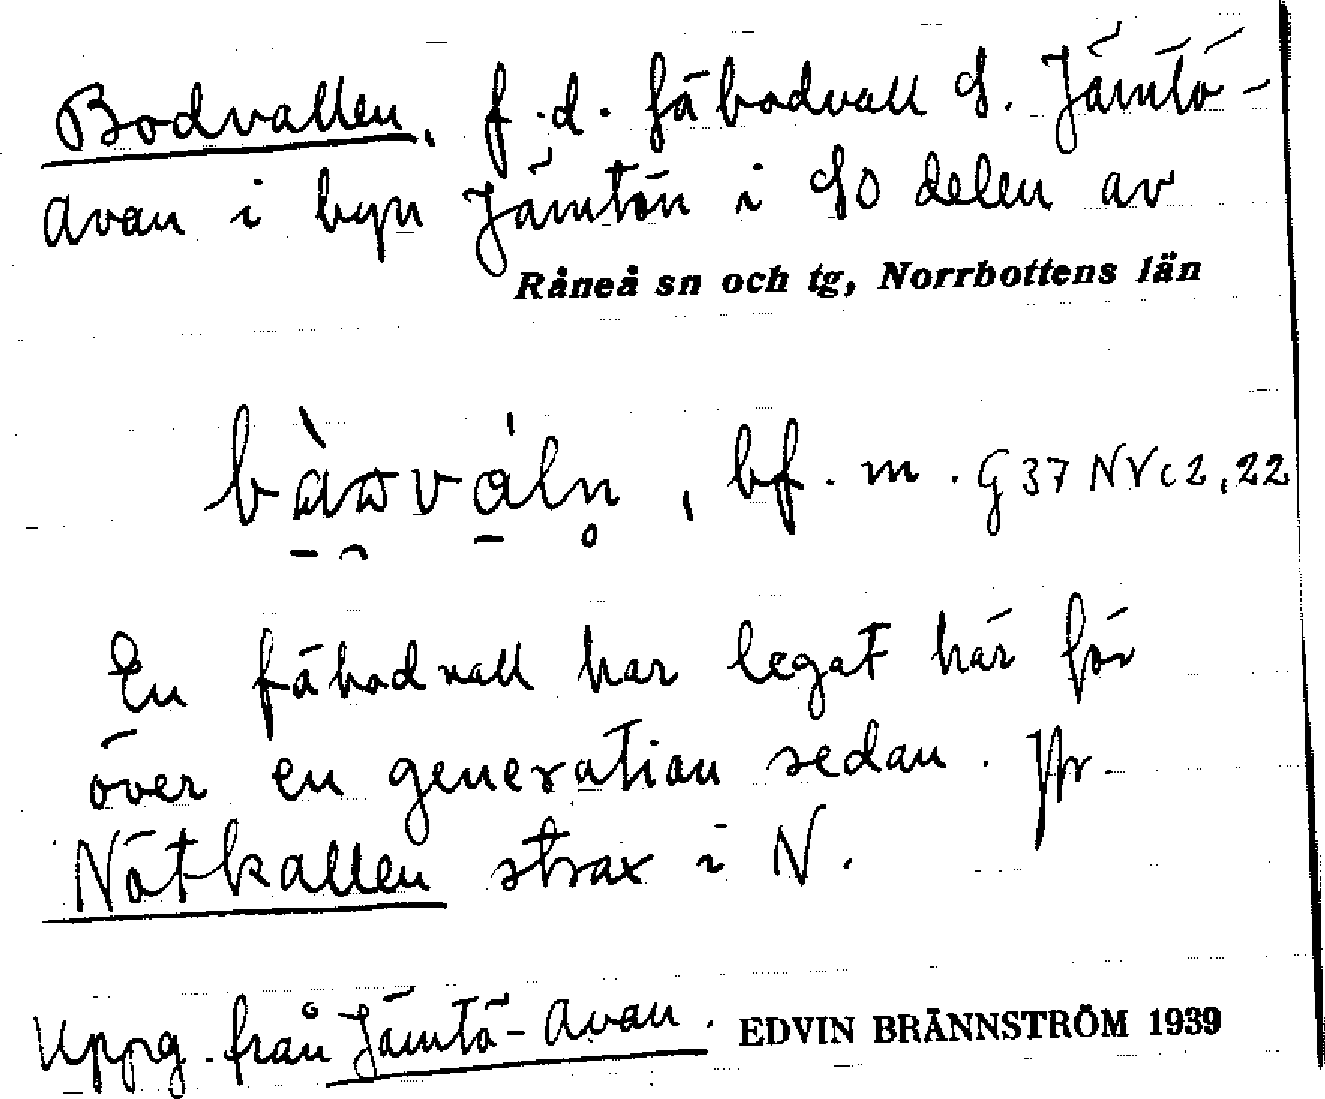 Bodvallen, f.d. fäbodvall S. Jämtö-
avan i byn Jämtön i SO delen av
Råneå sn och tg, Norrbottens län
bf. m. G 37 NV c 2, 22
En fäbodvall har legat här för
över en generation sedan. Jfr
Nötkallen strax i N.
Uppg. från Jämtö-Avan. EDVIN BRÄNNSTRÖM 1939